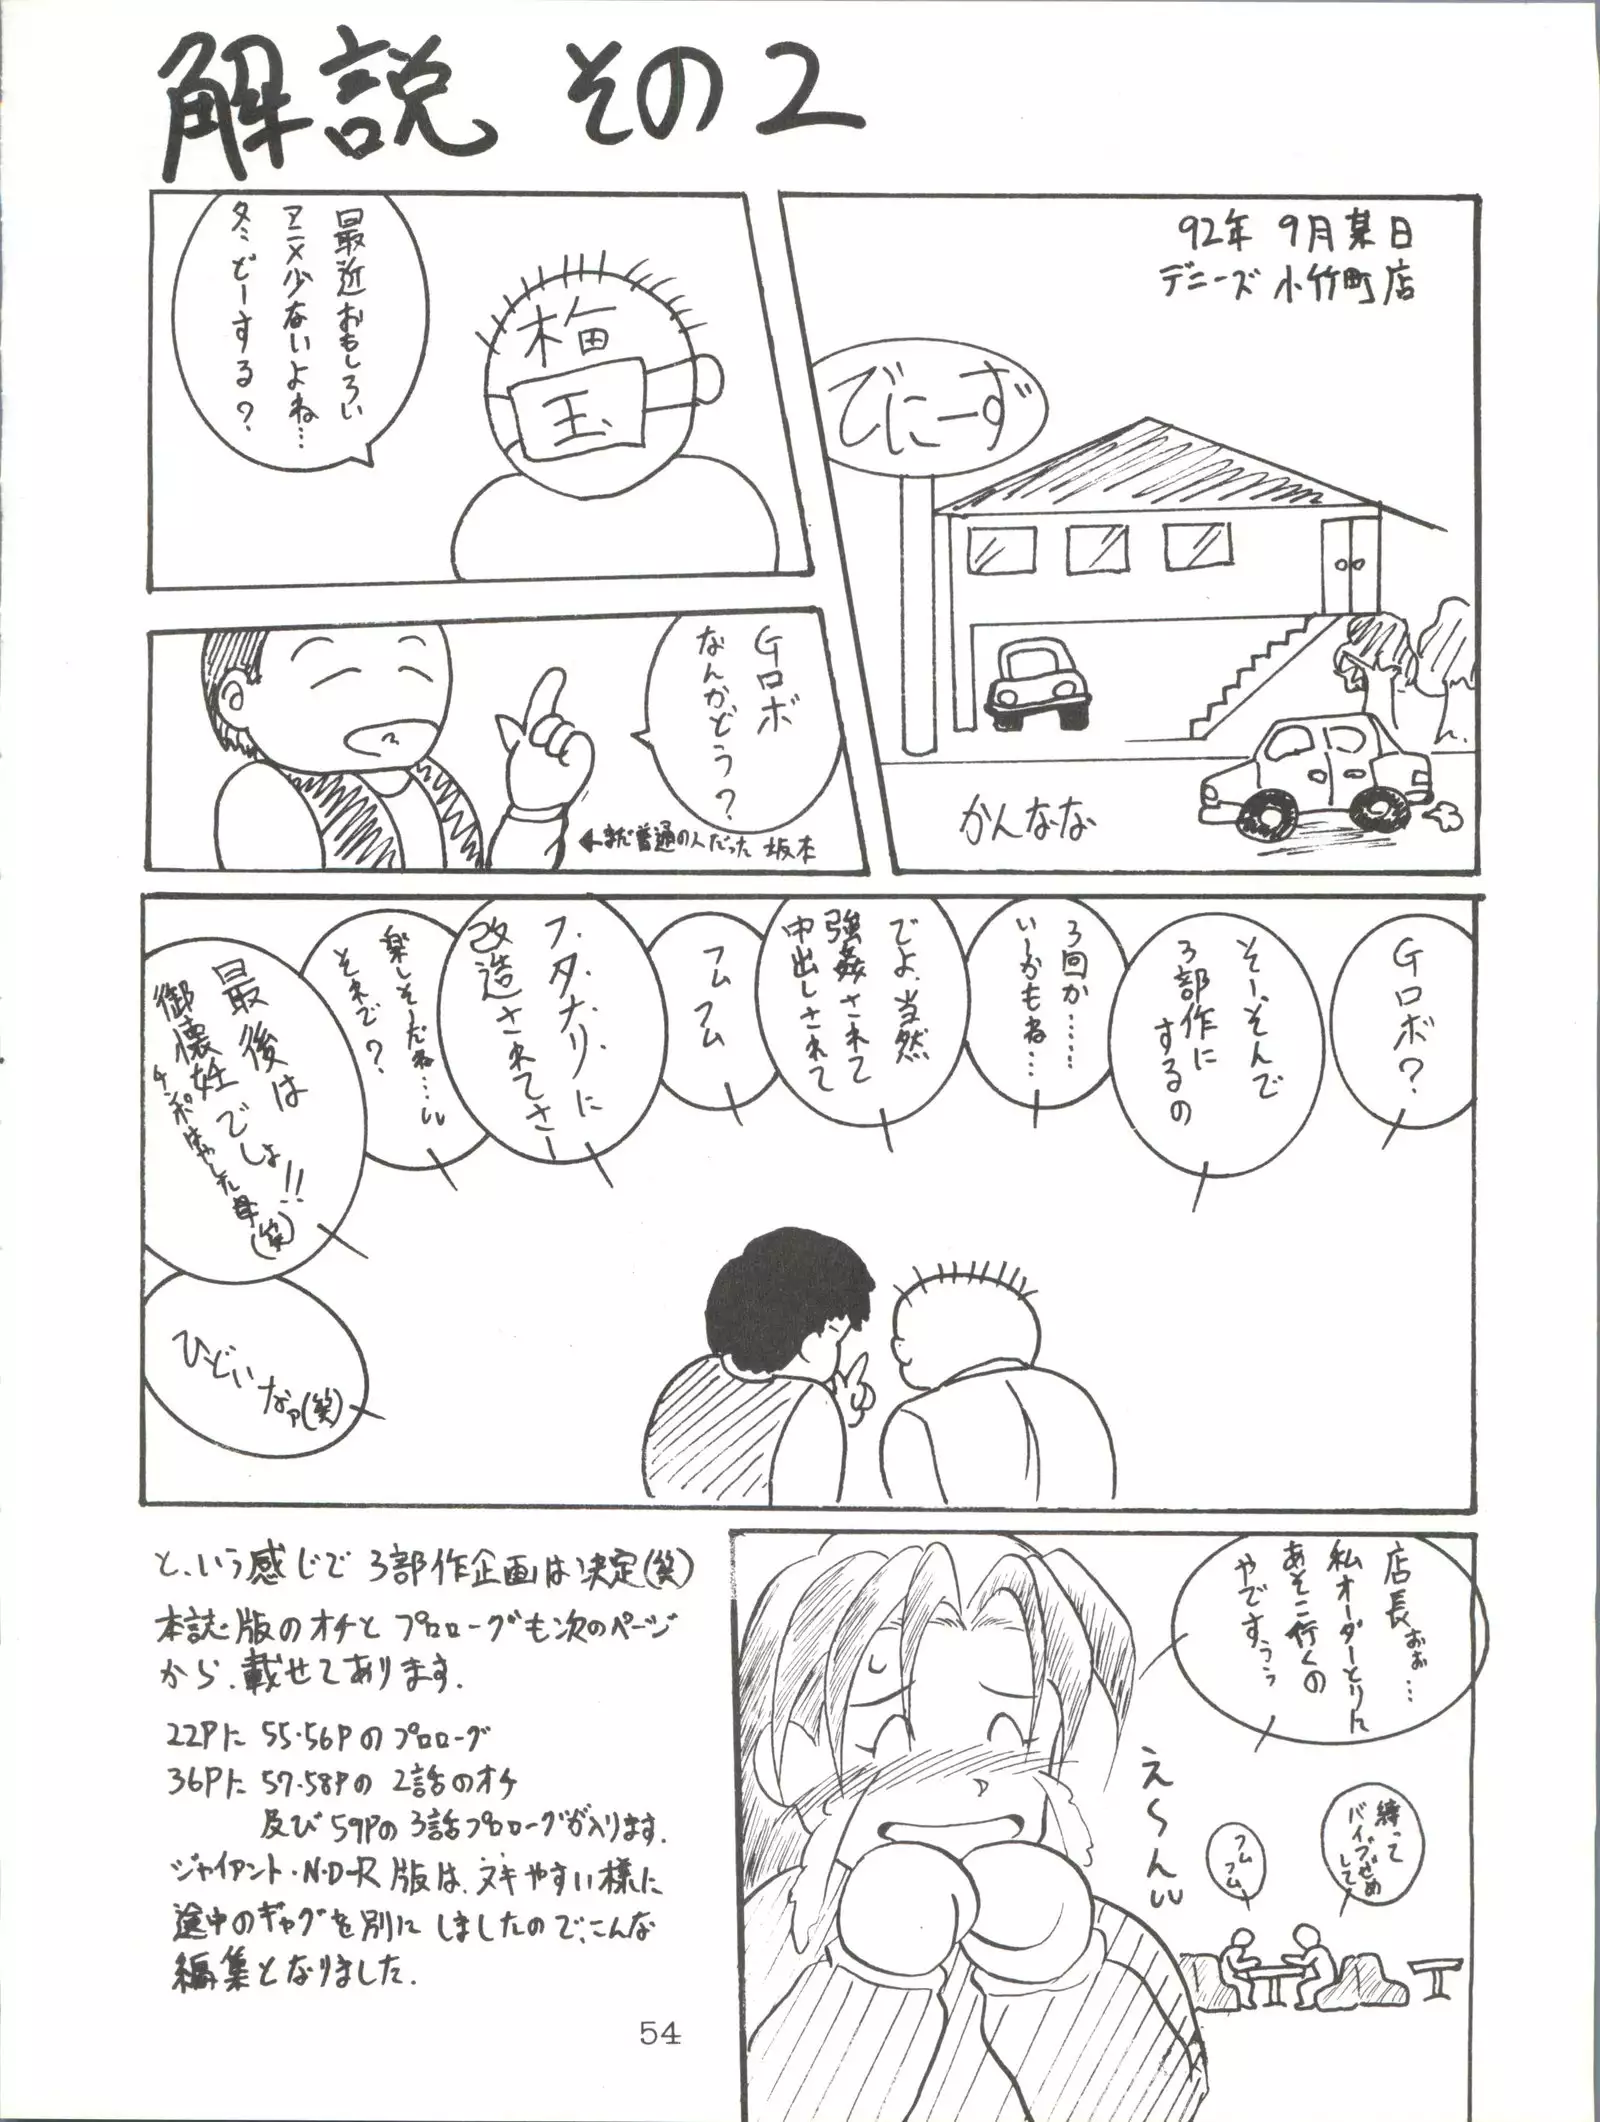 解説 その2
92年 9月某日
デニーズ 小竹町店
でにーず
かんなな
最近おもしろい
アニメ少ないよね…
冬どーする?
梅
玉
Gロボ
なんかどう?
←まだ普通の人だった 坂本
Gロボ?
そー、そんで
3部作に
するの
3回か……
いーかもね…
でよ、当然
強姦されて
中出しされて
フム
フム
フ、タ、ナ、リ、に
改造されてさー
楽しそーだね…
それで?
最後は
御懐妊でしょ!!
チンポはやした母(笑)
ひどいなァ(笑)
店長ぉぉ…
私オーダーとりに
あそこ行くの
やですぅぅ
え〜ん
縛って
バイブぜめ
して
フム
フム
と、いう感じで 3部作企画は決定(笑)
本誌版のオチと プロローグも次のページ
から、載せてあります.
22Pに 55・56Pのプロローグ
36Pに 57・58Pの 2話のオチ
及び59Pの3話プロローグが入ります.
ジャイアント・N・D-R 版は、ヌキやすい様に
途中のギャグを別に しましたので、こんな
編集となりました.
54